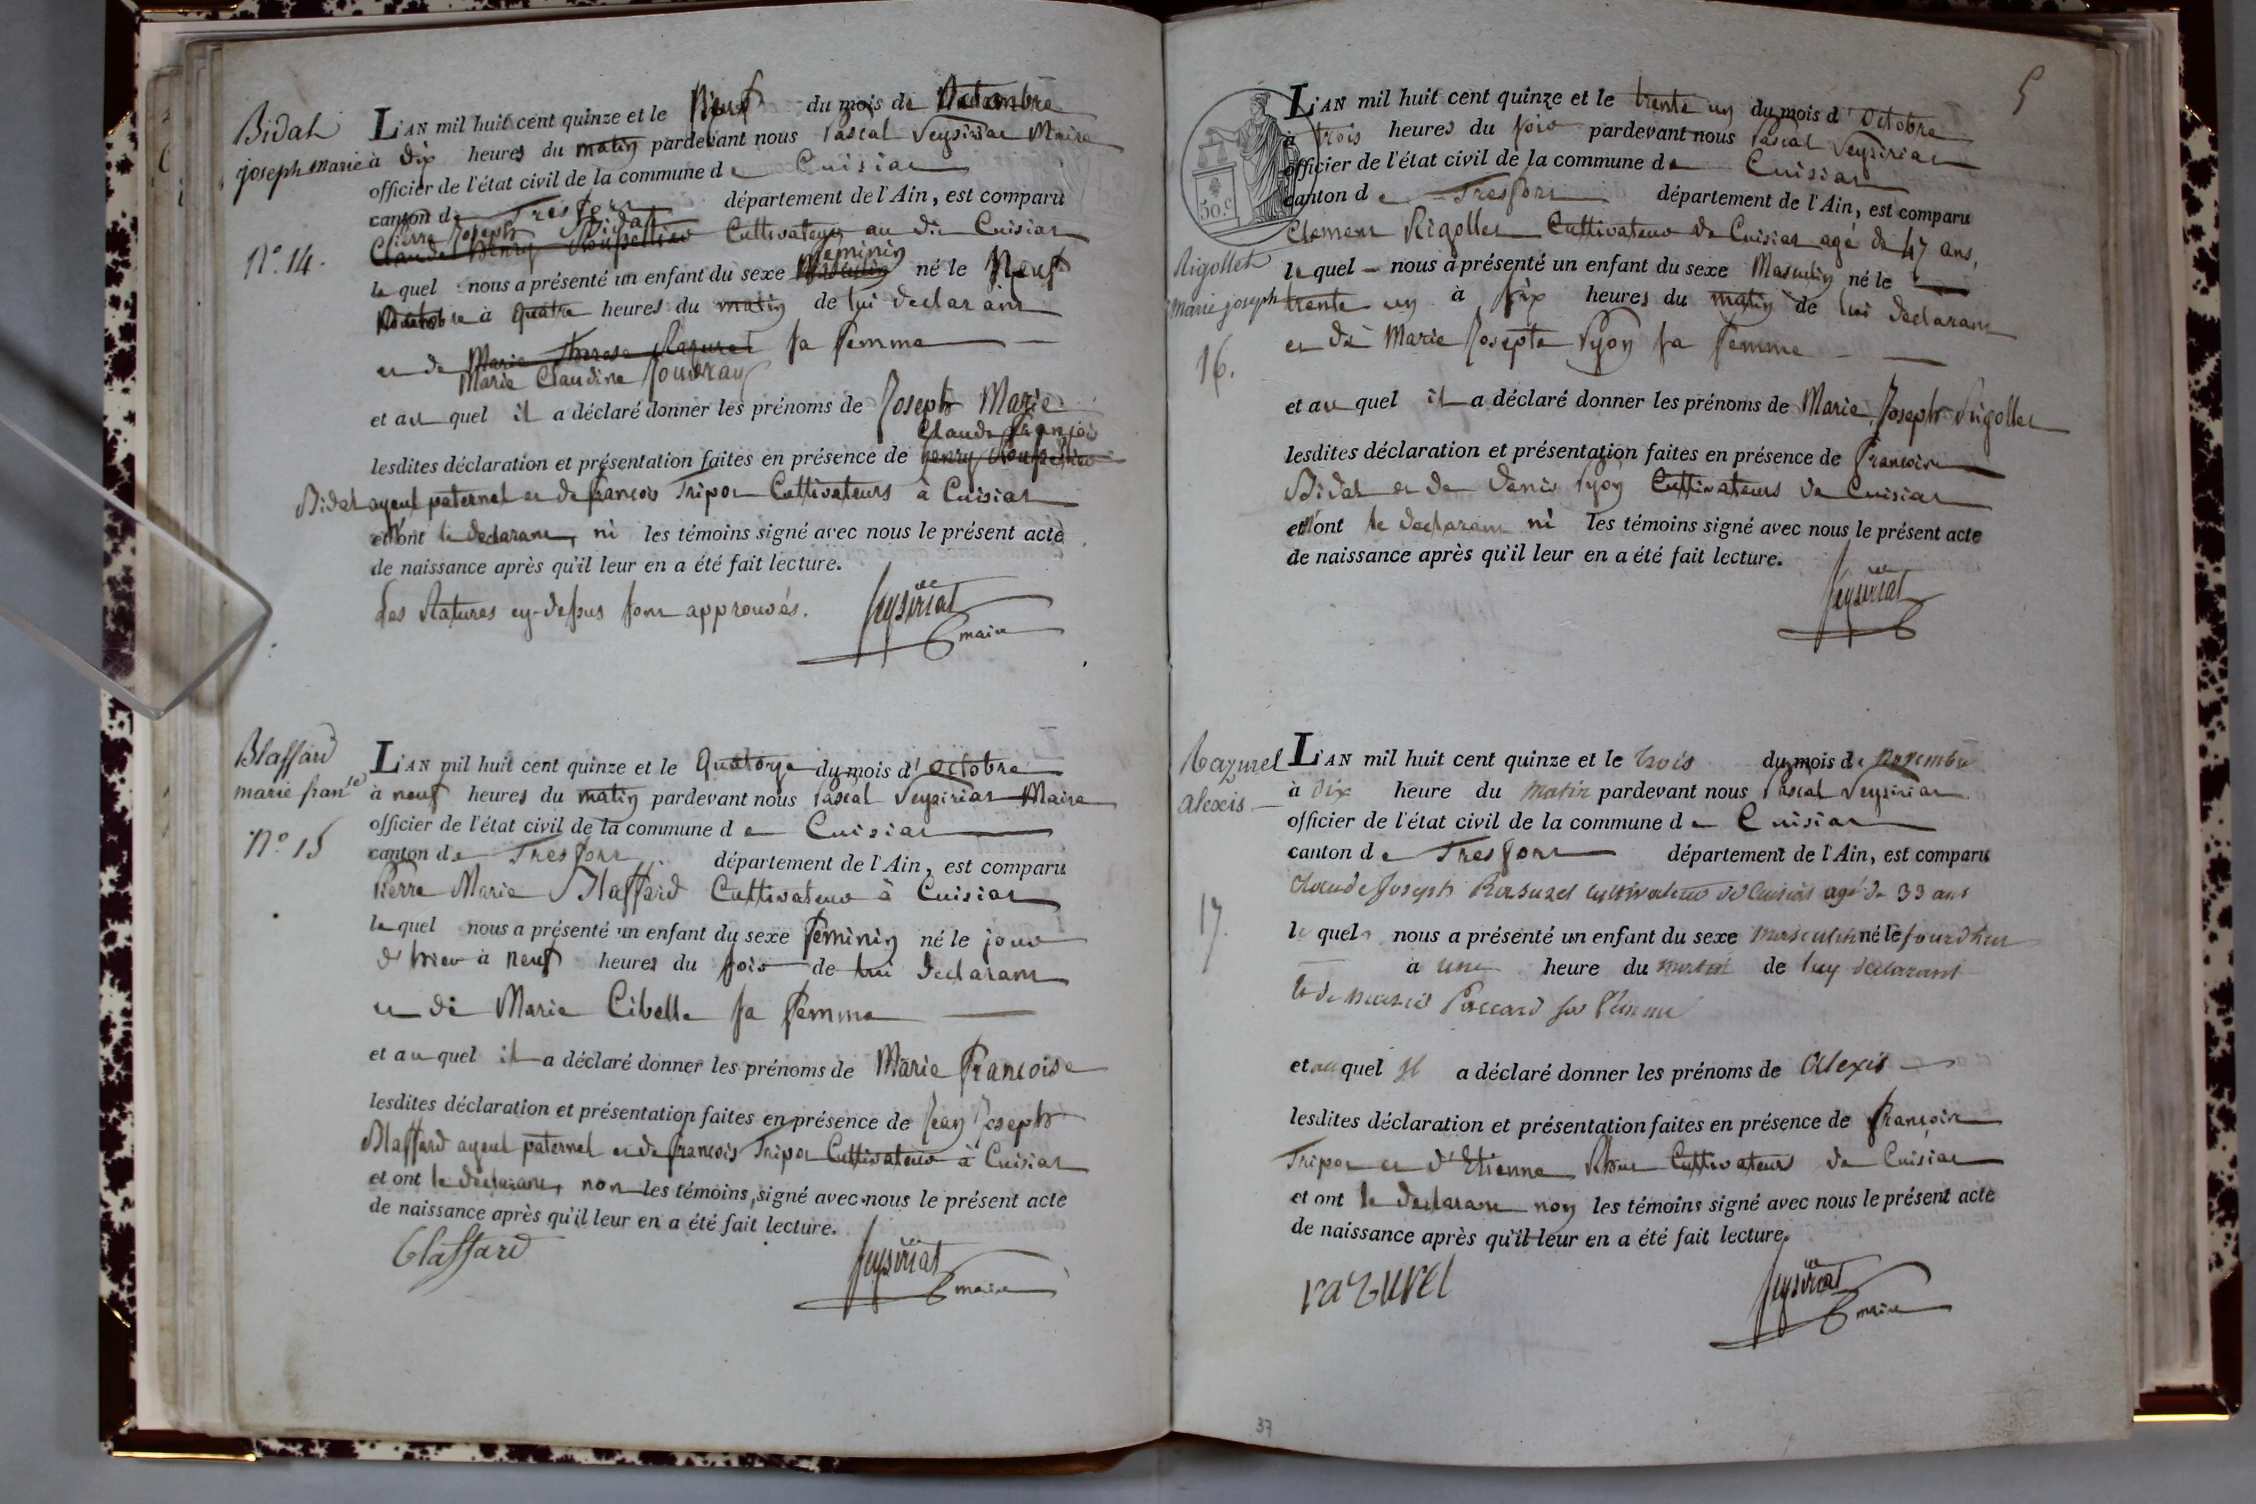 Bidal
joseph marie
N.º 14.
L'AN mil huit cent quinze et le Neuf du mois de
à dix heures du matin pardevant nous Pascal Veysiriat Maire
officier de l'état civil de la commune de Cuisiat
canton de Tresfort département de l'Ain, est comparu
Pierre Joseph Bidal
Claude Henry Cultivateur au dit Cuisiat
feminin
lequel nous a présenté un enfant du sexe né le Neuf
à quatre heures du matin de lui declarant
et de Marie Therese Razurel sa femme
Marie Claudine
et auquel il a déclaré donner les prénoms de Joseph Marie
Claude françois
lesdites déclaration et présentation faites en présence de henry
Bidal ayeul paternel et de françois Tripoz Cultivateurs à Cuisiat
et n'ont le declarant, ni les témoins signé avec nous le présent acte
de naissance après qu'il leur en a été fait lecture.
Les Ratures cy-dessus sont approuvés. Veysiriat
maire
Blaffard
marie fran.se
N.º 15
L'AN mil huit cent quinze et le Quatorze du mois d'octobre
à neuf heures du matin pardevant nous Pascal Veysiriat Maire
officier de l'état civil de la commune de Cuisiat
canton de Tresfort département de l'Ain, est comparu
Pierre Marie Blaffard Cultivateur à Cuisiat
lequel nous a présenté un enfant du sexe feminin né le jour
d'hier à neuf heures du soir de lui declarant
et de Marie Cibelle sa femme
et auquel il a déclaré donner les prénoms de Marie françoise
lesdites déclaration et présentation faites en présence de Jean Joseph
Blaffard ayeul paternel et de françois Tripoz Cultivateur à Cuisiat
et ont le declarant, non les témoins, signé avec nous le présent acte
de naissance après qu'il leur en a été fait lecture.
blaffard Veysiriat
maire
5
50.c
Rigollet
marie joseph
16.
L'AN mil huit cent quinze et le trente un du mois d'octobre
à trois heures du soir pardevant nous Pascal Veysiriat
officier de l'état civil de la commune de Cuisiat
canton de Tresfort département de l'Ain, est comparu
Clement Rigollet Cultivateur de Cuisiat agé de 47 ans,
lequel nous a présenté un enfant du sexe Masculin né le
trente un à six heures du matin de lui declarant
et de Marie Josepte Pyon sa femme
et auquel il a déclaré donner les prénoms de Marie Joseph Rigollet
lesdites déclaration et présentation faites en présence de françois
Bidal et de Denis Pyon Cultivateurs de Cuisiat
et n'ont le declarant ni les témoins signé avec nous le présent acte
de naissance après qu'il leur en a été fait lecture.
Veysiriat
Razurel
alexis
17.
L'AN mil huit cent quinze et le trois du mois de Novembre
à dix heure du matin pardevant nous Pascal Veysiriat
officier de l'état civil de la commune de Cuisiat
canton de Tresfort département de l'Ain, est comparu
Claude Joseph Razurel cultivateur de Cuisiat agé de 33 ans
lequel nous a présenté un enfant du sexe masculin né le jourd'hui
à une heure du matin de luy declarant
et de Paccard sa femme
et auquel il a déclaré donner les prénoms de Alexis
lesdites déclaration et présentation faites en présence de françois
Tripoz et d'Etienne Cultivateurs de Cuisiat
et ont le declarant non les témoins signé avec nous le présent acte
de naissance après qu'il leur en a été fait lecture.
razurel Veysiriat
maire
37